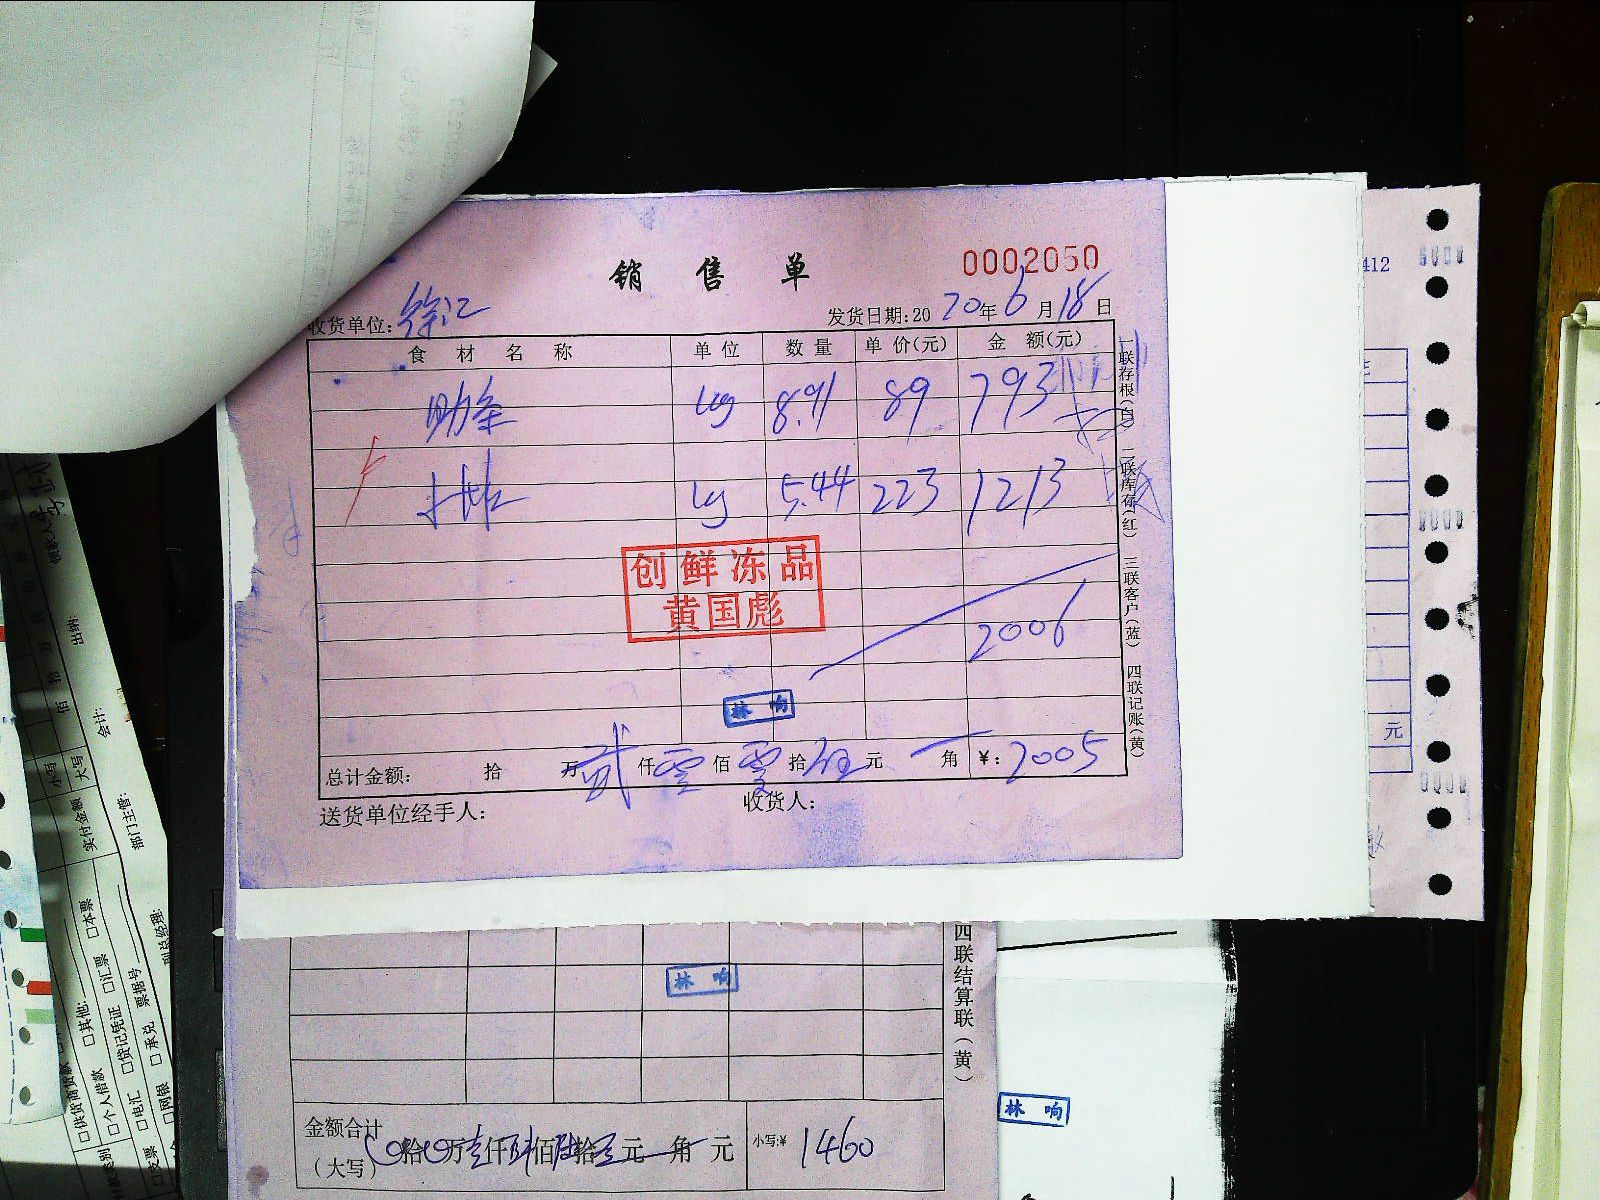 销售单
0002050
收货单位：徐汇
发货日期:2020年6月18日
食材名称 单位 数量 单价(元) 金额(元)
肋条 kg 8.91 89 793
kg 5.44 223 1213
创鲜冻品
黄国彪
2006
林响
总计金额： 拾 万贰仟零佰零拾伍元 角 ¥：2005
送货单位经手人： 收货人：
一联存根(白) 二联库存(红) 三联客户(蓝) 四联记账(黄)
412
元
四联结算联(黄)
林响
金额合计
(大写) 拾 万壹仟肆佰陆拾元 角 元 小写:¥ 1460
林响
出纳:
会计:
部门主管:
副总经理:
小写
大写
实付金额
佰
拾
□本票
□汇票
票据号
□其他:
□贷记凭证
□承兑
□供货商货款
□个人借款
□电汇
□网银
□支票